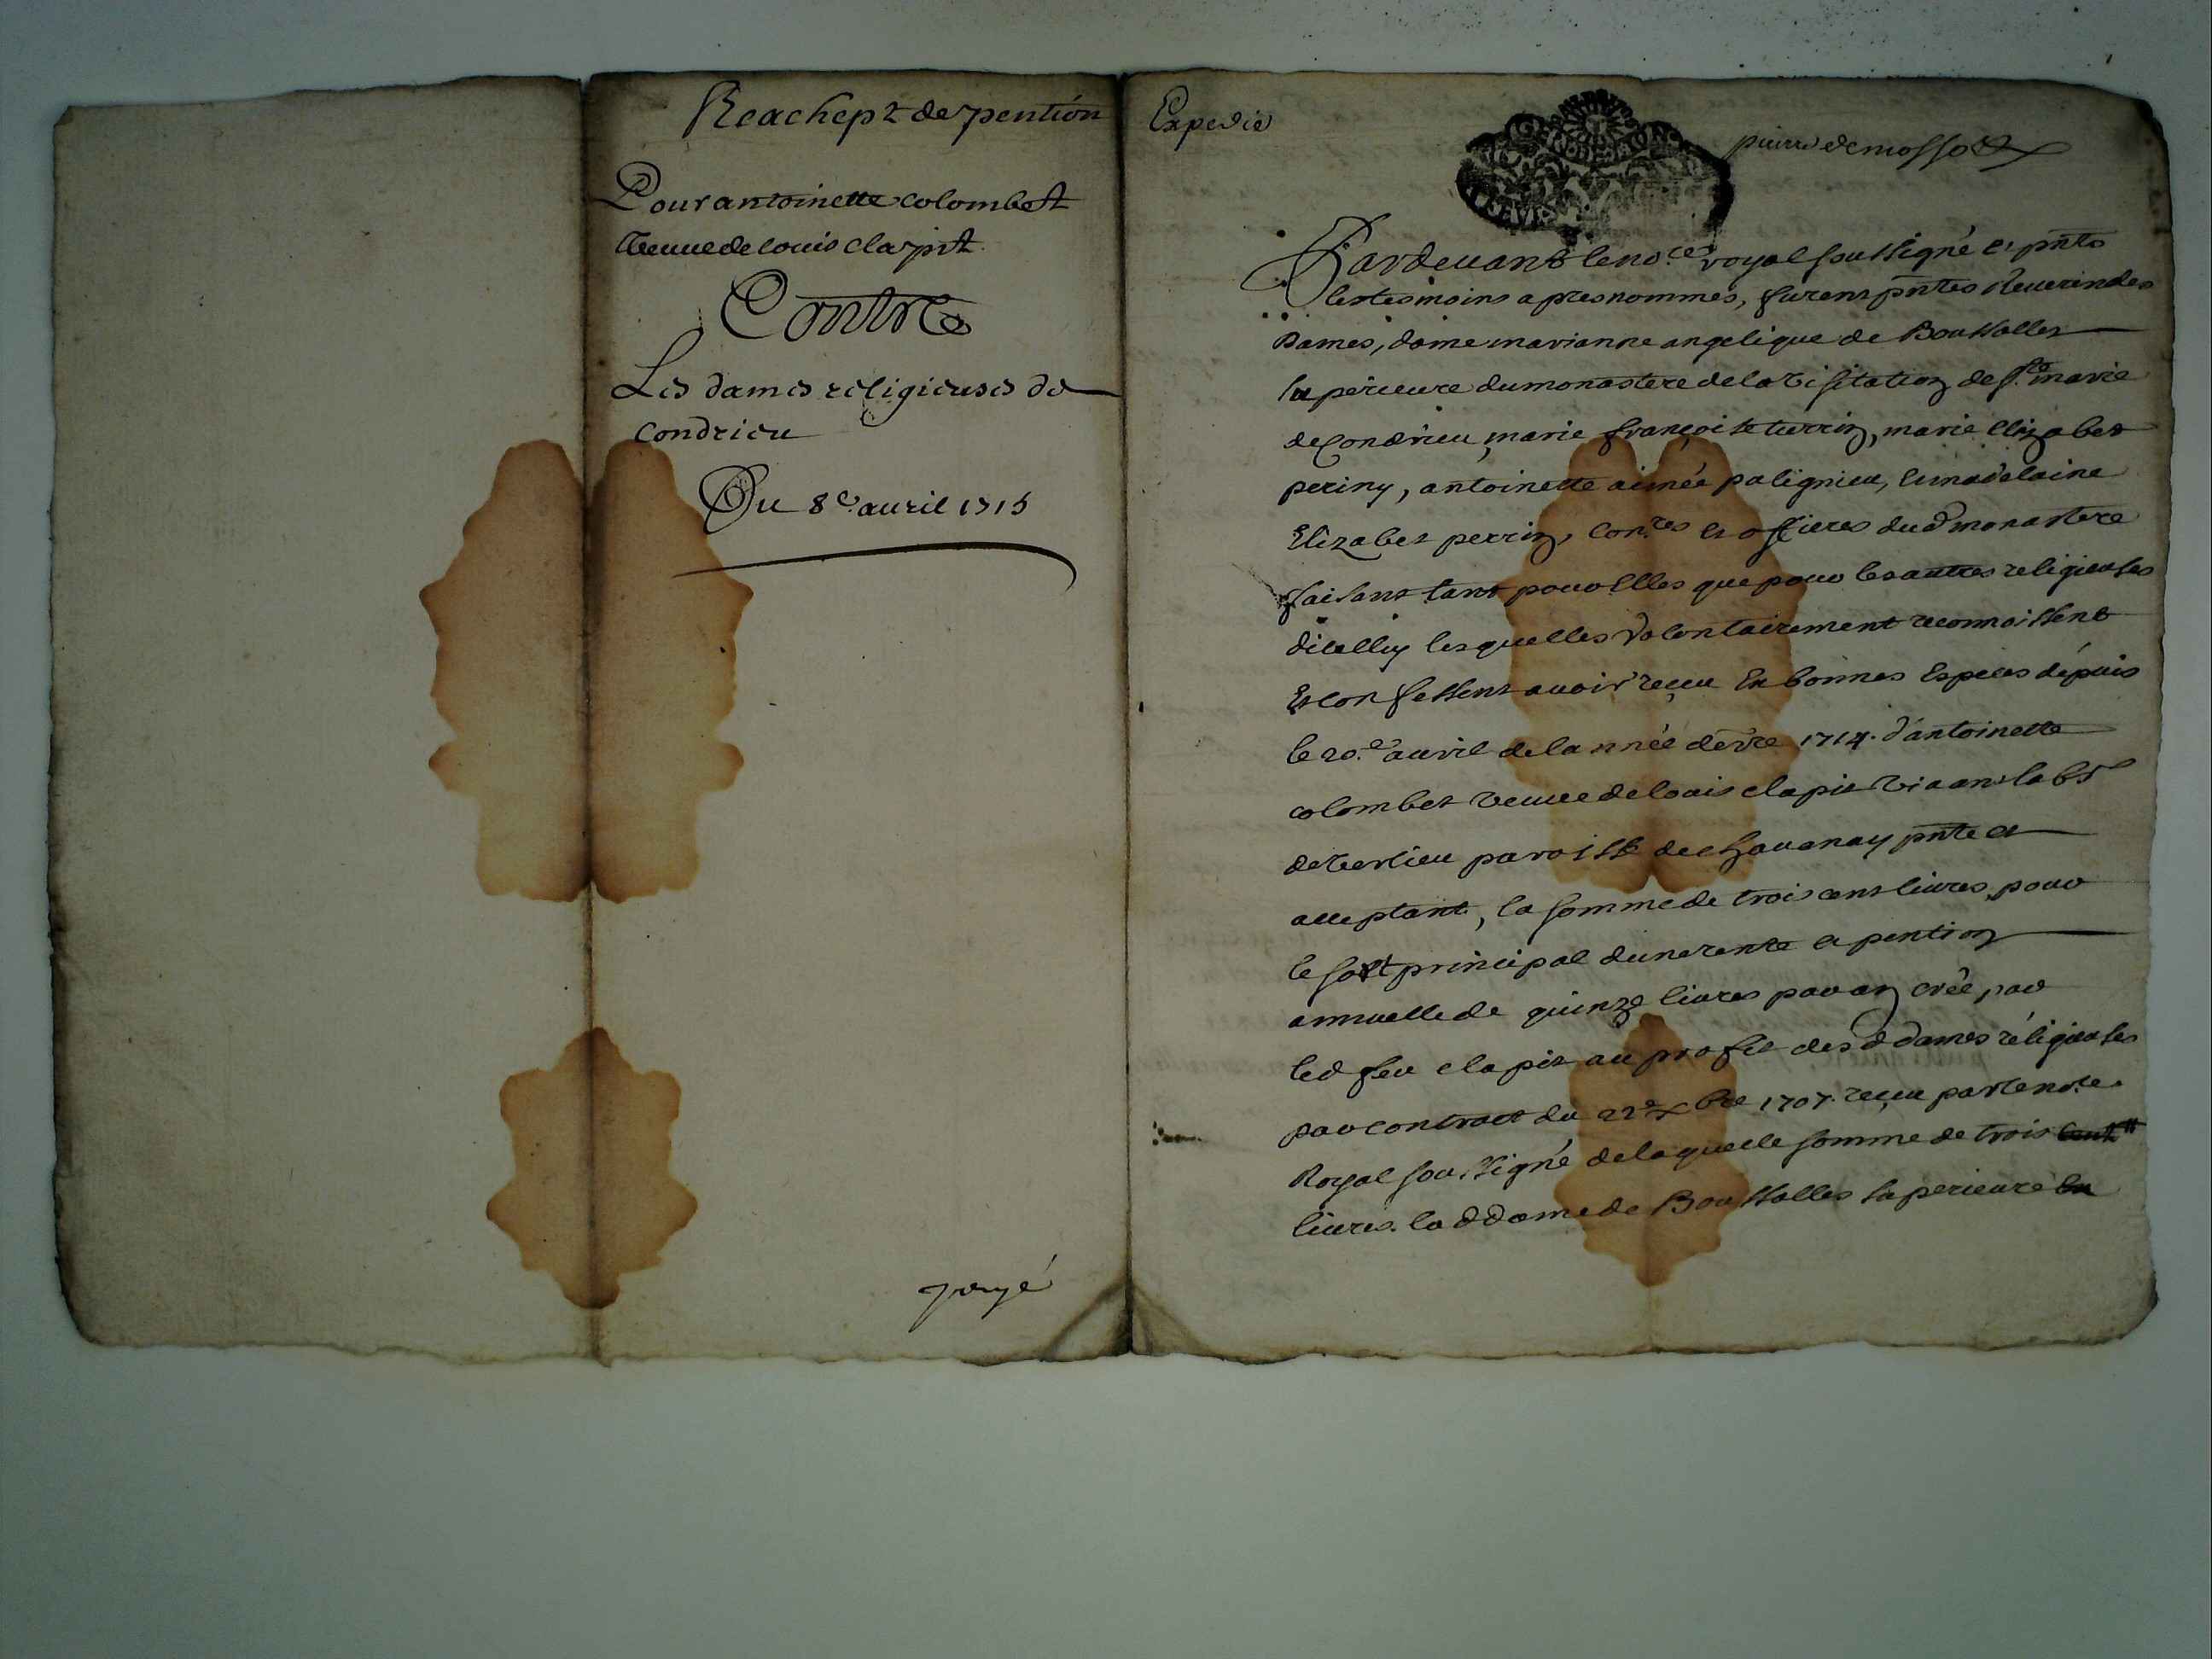 Reachept de pention
Pour antoinette colombet
Veuue de louis clapit
Contre
Les dames religieuses de
Condrieu
Du 8e. auril 1715
payé
Expedié
pierre demossot
Pardeuant le no.re royal soussigné et pnts
les tesmoins apres nommés, furent pntes Reuerindes
Dames, dame marianne angelique de Boussolles
superieure du monastere de la Visitation de Ste marie
de Condrieu, marie françoise terrin, marie Elizabet
periny, antoinette aimée palignieu, et madelaine
Elizabet perrin, con.res et officres dud monastere
faisant tant pour Elles que pour les autres religieuses
dicelluy lesquelles Volontairement reconnoissent
Et confessent auoir reçeu En bonnes Especes dépuis
le 20.e auril de la nnée derre 1714. d'antoinette
colombet veuue de louis clapit Viuant
de Verlieu paroisse de chauanay pnte et
acceptant, la somme de trois cent liures, pour
le sort principal dune rente et pention
annuelle de quinze liures par an créé par
led feu clapit au profit desd dames réligieuses
par contract du 22e xbre 1707. reçeu par le no.re
Royal soussigné de laquelle somme de trois cent
liures. lad dame de Boussolles superieure